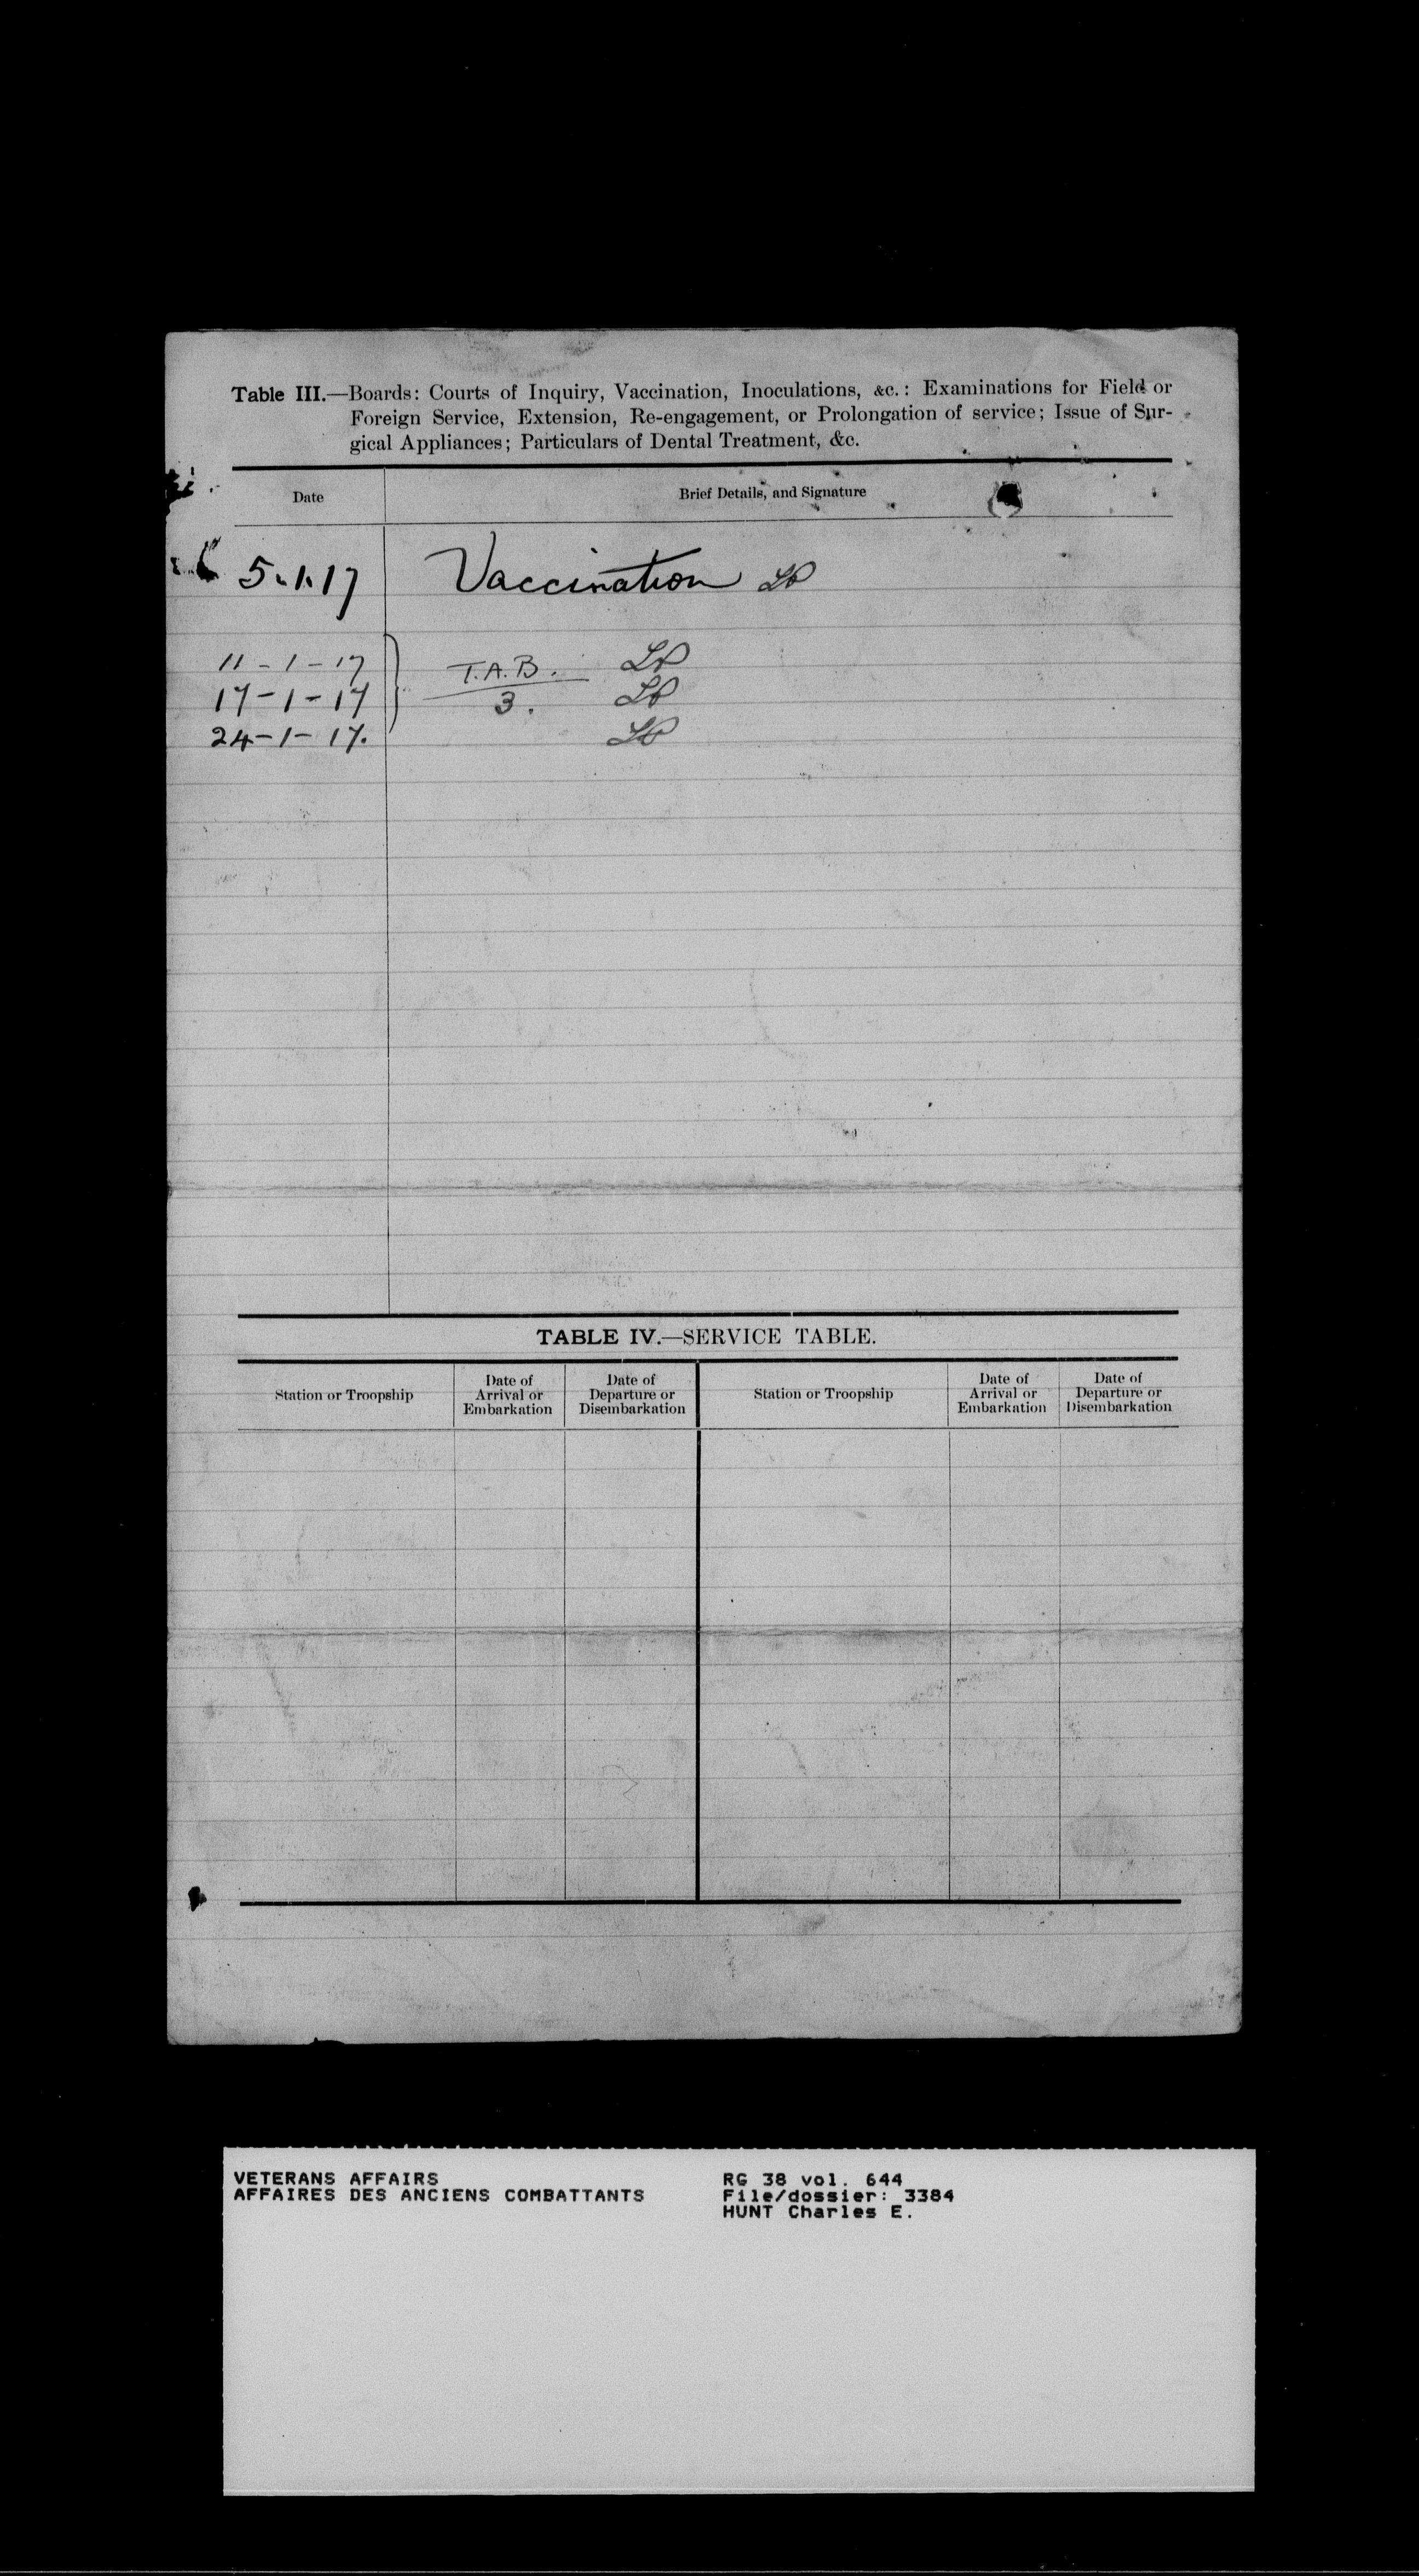 Table III.—Boards: Courts of Inquiry, Vaccination, Inoculations, &c.: Examinations for Field or
Foreign Service, Extension, Re-engagement, or Prolongation of service; Issue of Sur-
gical Appliances; Particulars of Dental Treatment, &c.
Date Brief Details, and Signature
5.1.17 Vaccination
11-1-17 T.A.B.
17-1-17 3.
24-1-17.
TABLE IV.—SERVICE TABLE.
Station or Troopship Date of Arrival or Embarkation Date of Departure or Disembarkation Station or Troopship Date of Arrival or Embarkation Date of Departure or Disembarkation
VETERANS AFFAIRS RG 38 vol. 644
AFFAIRES DES ANCIENS COMBATTANTS File/dossier: 3384
HUNT Charles E.